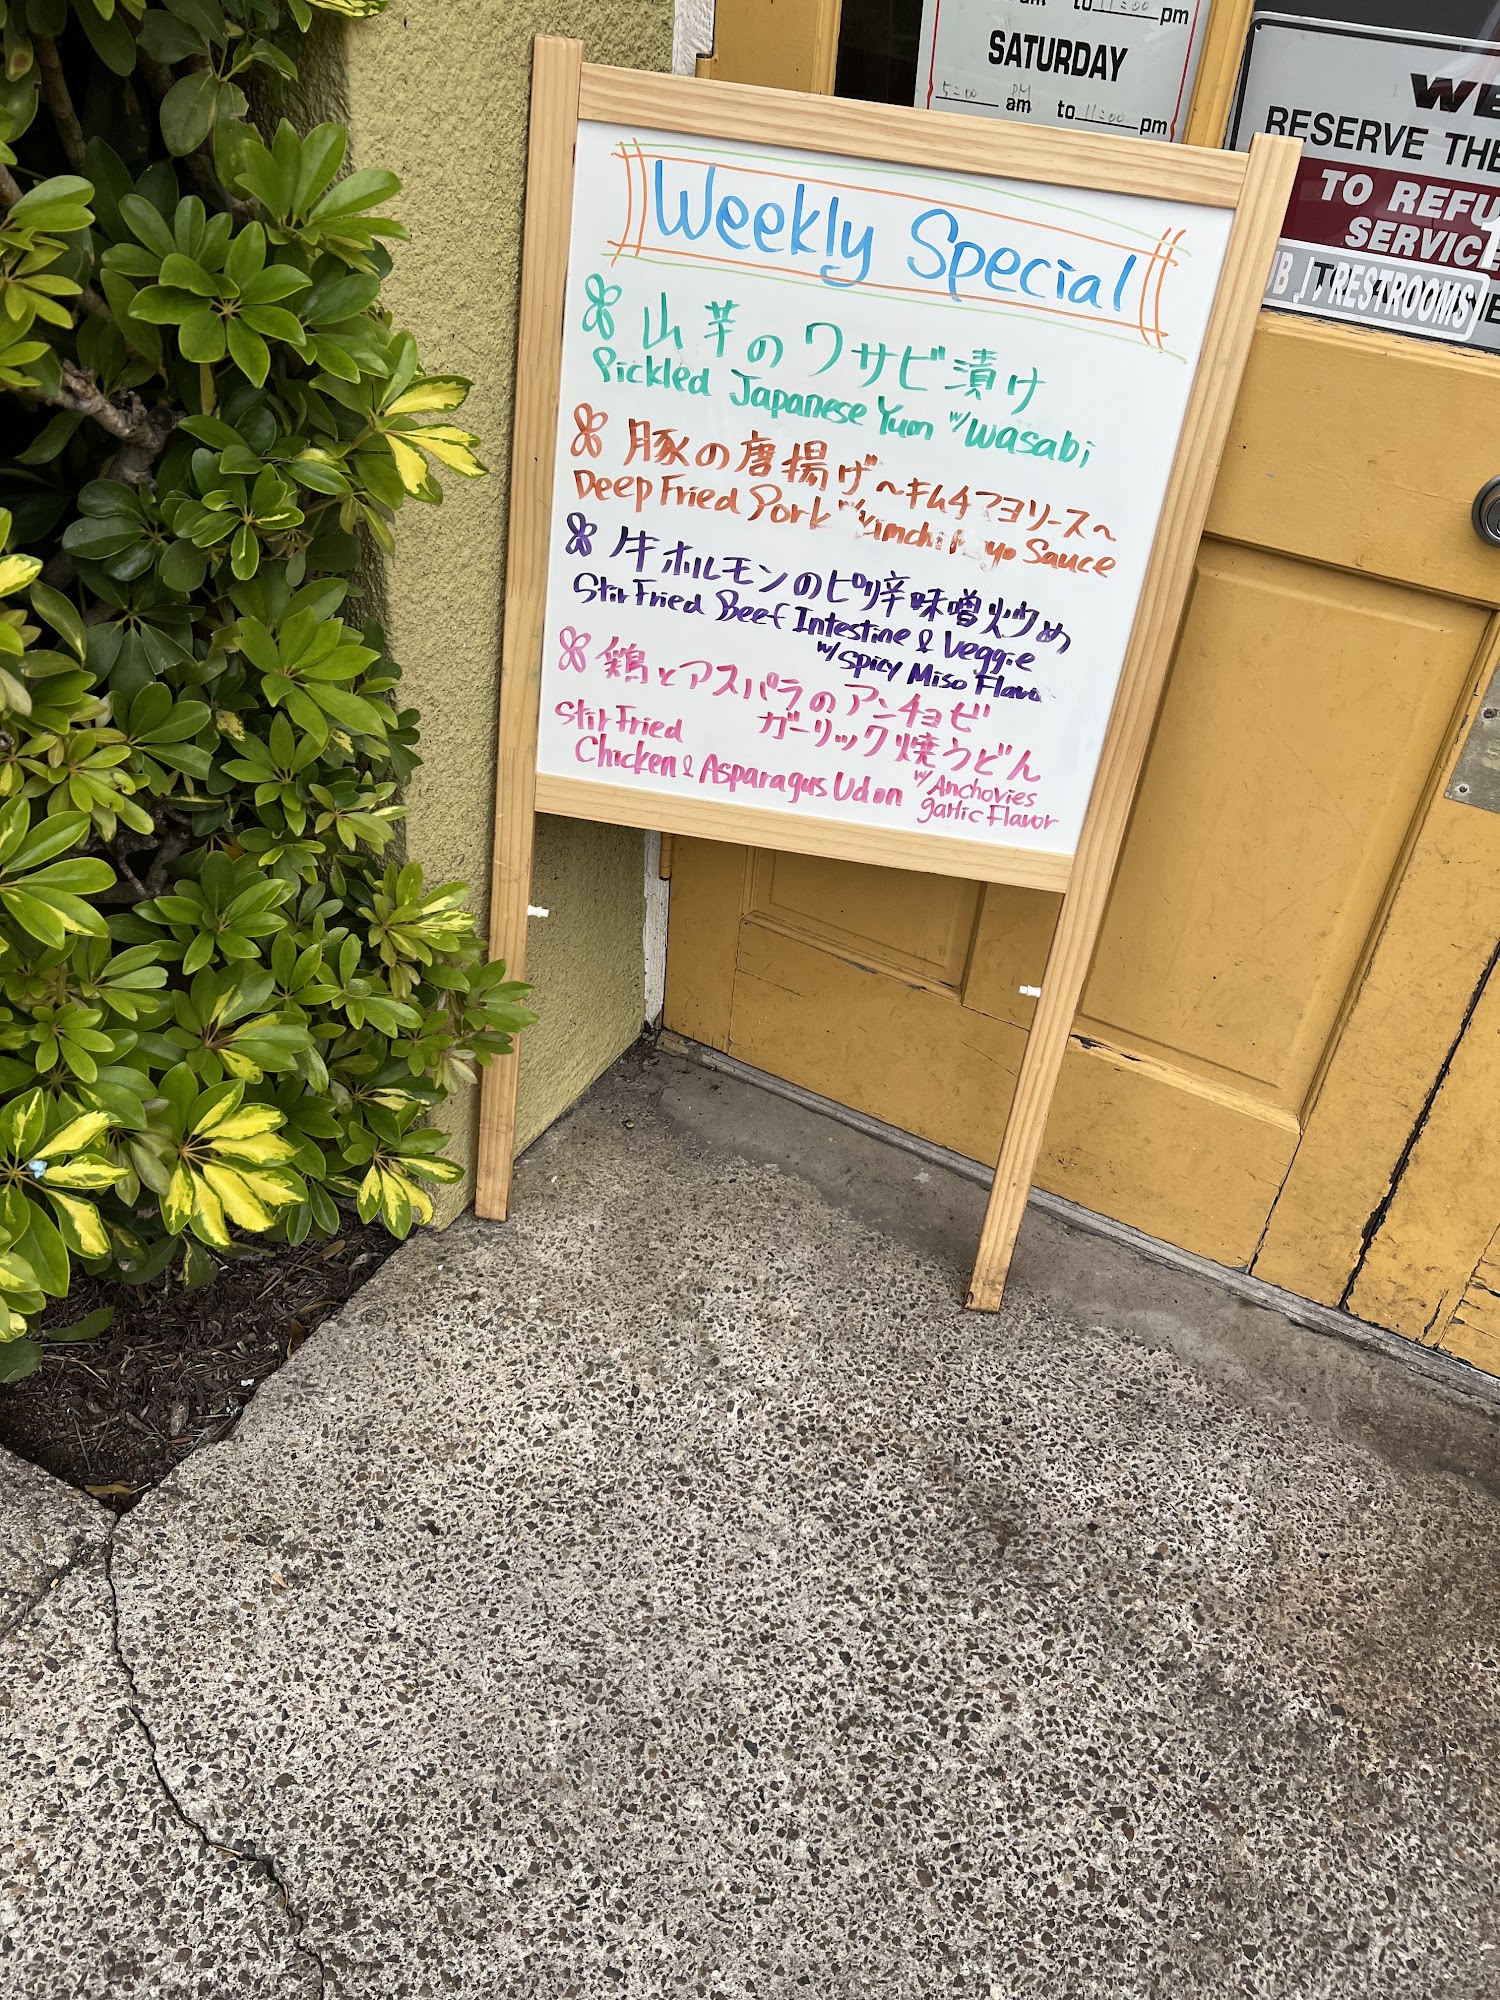 to 11:00 pm
SATURDAY
5:00 PM am to 11:00 pm
WE
RESERVE THE
TO REFU
SERVIC
RESTROOMS
Weekly Special
山芋のワサビ漬け
Pickled Japanese Yum w/ Wasabi
豚の唐揚げ〜キムチマヨソース〜
Deep Fried Pork w/ Kimchi Mayo Sauce
牛ホルモンのピリ辛味噌炒め
Stir Fried Beef Intestine & Veggie
w/ Spicy Miso Flavo
鶏とアスパラのアンチョビ
ガーリック焼うどん
Stir Fried
Chicken & Asparagus Udon w/ Anchovies
garlic Flavor